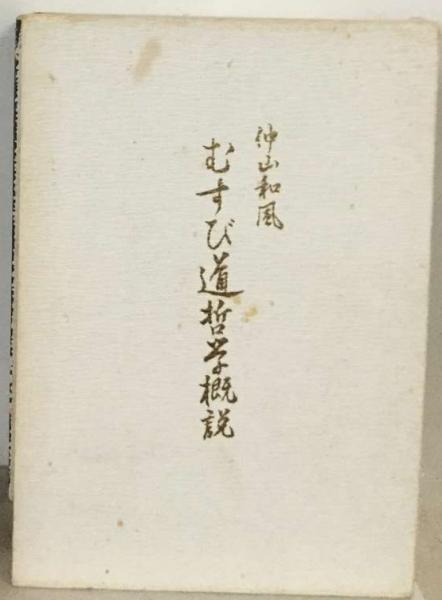 沖山和風
むすび道哲学概説